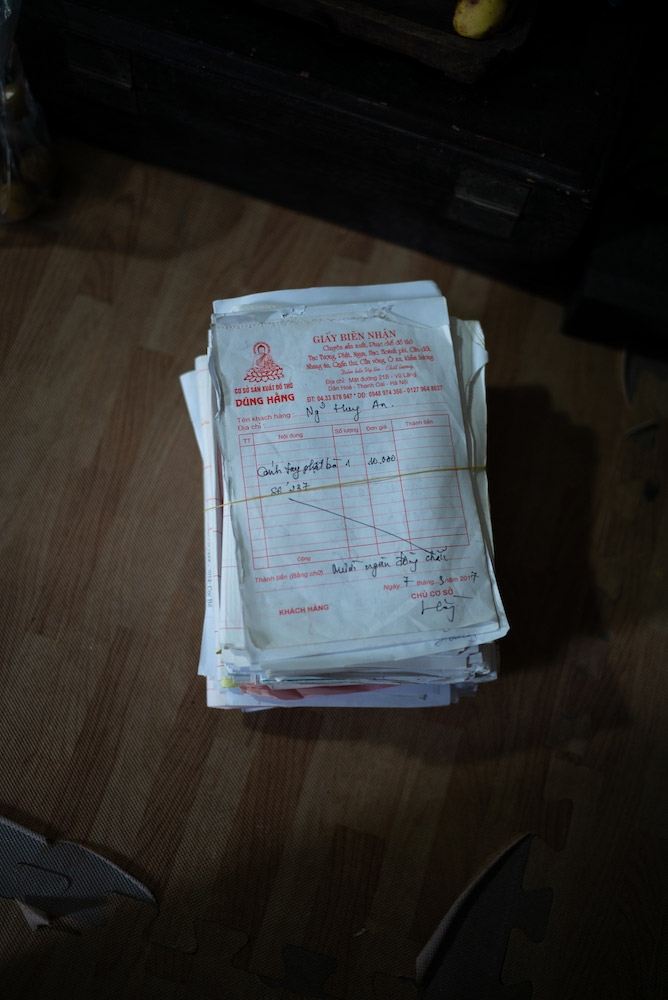 GIẤY BIÊN NHẬN
Chuyên sản xuất, Phục chế đồ thờ
Tạc Tượng, Phật, Ngai, Thờ, Hoành phi, Câu đối,
Nhang án, Quấn thư, Cửa võng, Ô xa, khảm tượng
CƠ SỞ SẢN XUẤT ĐỒ THỜ
DŨNG HẰNG
Địa chỉ: Mặt đường 21B - Vũ Lăng
Dân Hoà - Thanh Oai - Hà Nội
ĐT: 04.33 976 947 * DĐ: 0948 974 366 - 0127 964 8637
Tên khách hàng: Huy An.
Địa chỉ:
TT Nội dung Số lượng Đơn giá Thành tiền
Cánh tay phật bà 1 10.000
Số 237
Cộng
Thành tiền (Bằng chữ): Mười ngàn đồng chẵn
Ngày 7 tháng 3 năm 2017
KHÁCH HÀNG CHỦ CƠ SỞ